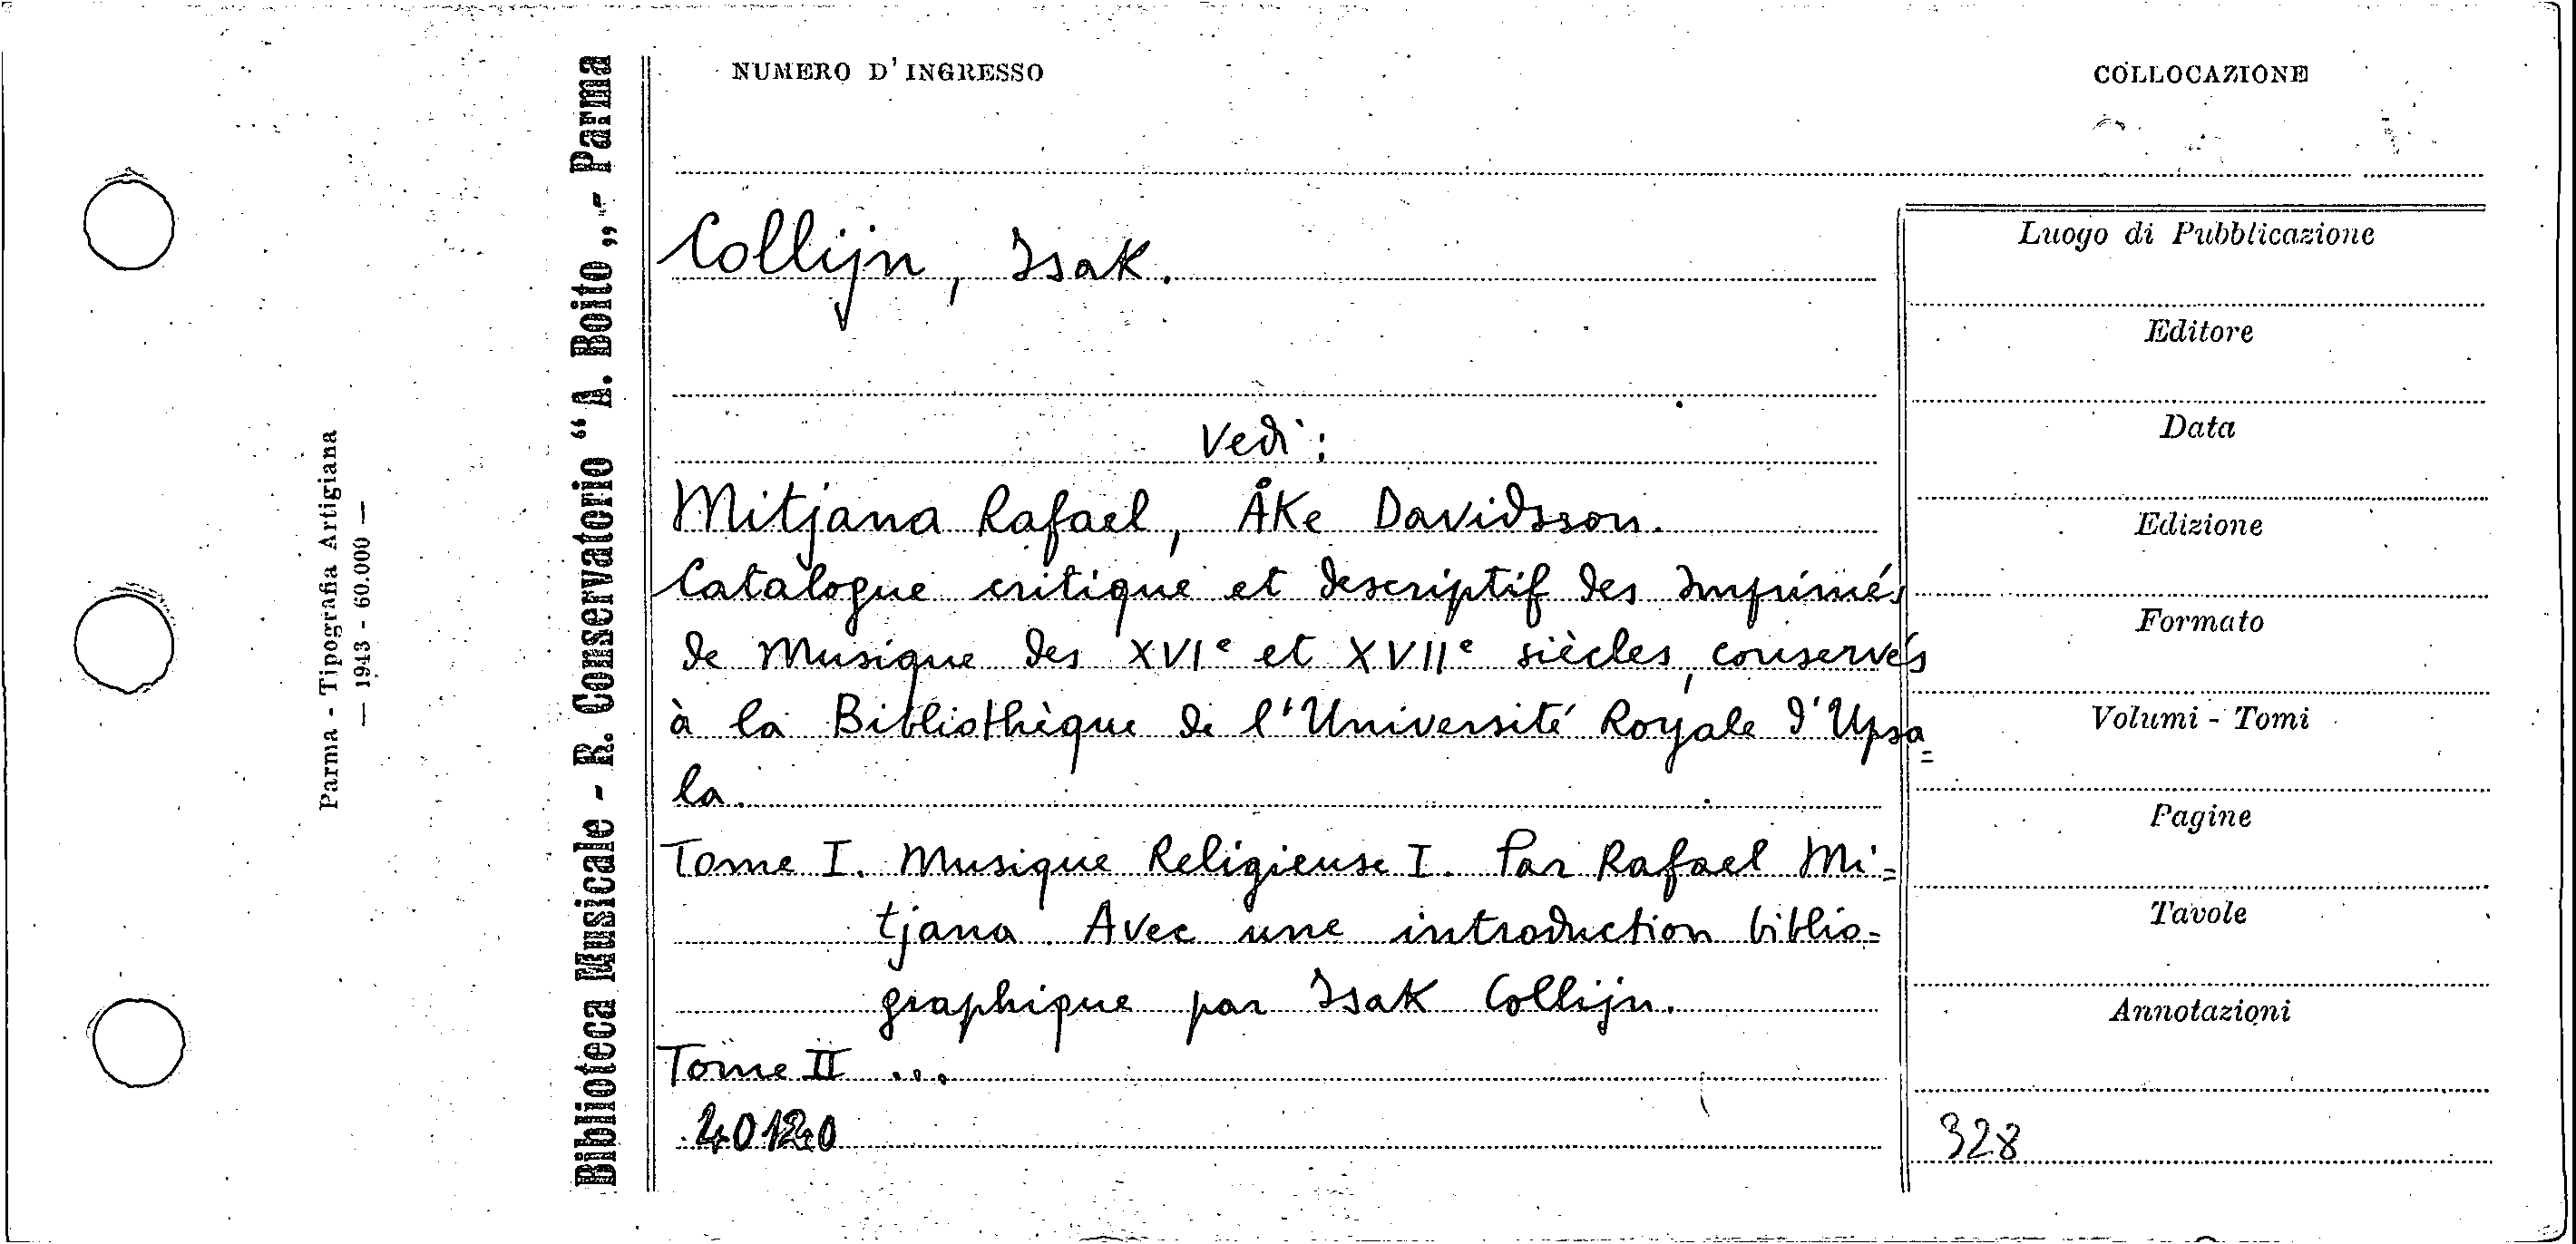 NUMERO D'INGRESSO
COLLOCAZIONE
Biblioteca Musicale - R. Conservatorio “A. Boito„ - Parma
Parma - Tipografia Artigiana
— 1943 - 60.000 —
Collijn, Isak.
Vedi:
Mitjana Rafael, Åke Davidsson.
Catalogue critique et descriptif des Imprimés
de Musique des XVIe et XVIIe siècles, conservés
à la Bibliothèque de l'Université Royale d'Upsa=
la.
Tome I. Musique Religieuse I. Par Rafael Mi=
tjana. Avec une introduction biblio=
graphique par Isak Collijn.
Tome II ...
40120
Luogo di Pubblicazione
Editore
Data
Edizione
Formato
Volumi - Tomi
Pagine
Tavole
Annotazioni
328